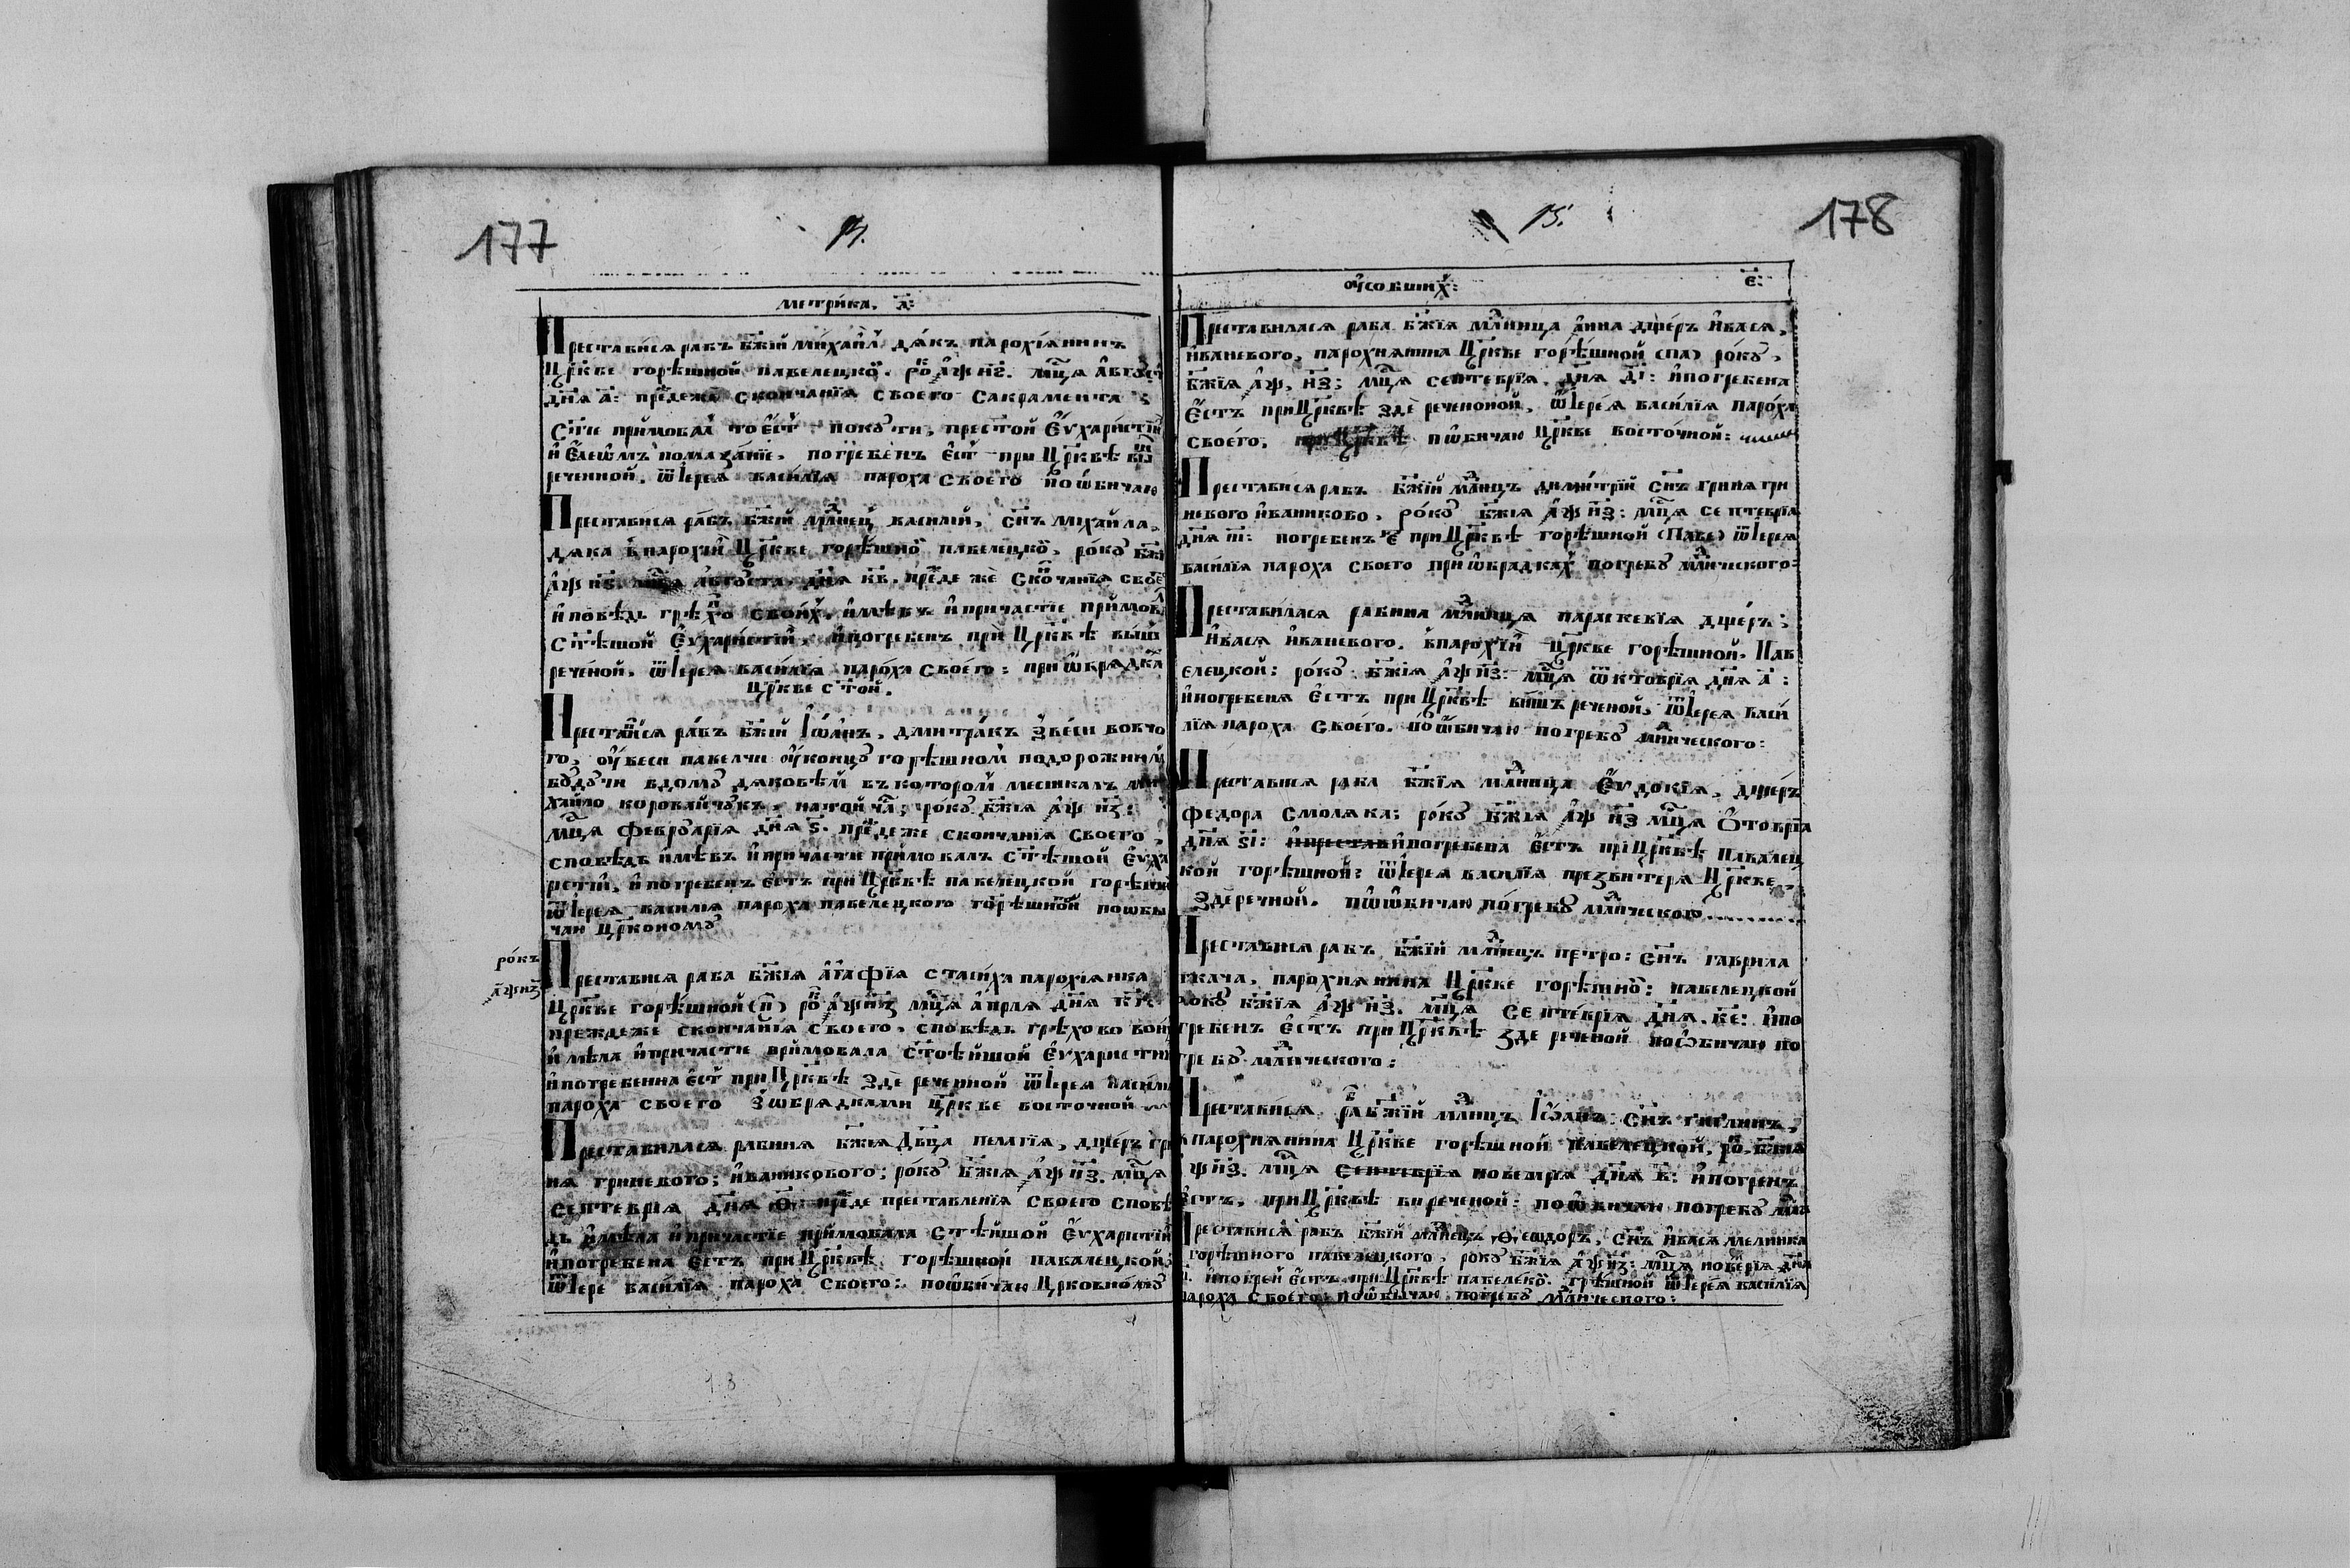 177
метрика. д҃:
Преставися рабъ бж҃їй Михаил дякъ парохїянинъ
Цр҃кве горѣшной павелецкої. рок҃ аѱ н҃ѕ. мц҃а Август
дн҃я а҃: прѣдеже скончанїя своего сакрамента
ст҃іе примовал то ест покути, престой Еѵхаристїи
и Елеѡмъ помазанїе. погребенъ ест при Цр҃квѣ виш
реченной. ѿ Іерея василїя пароха своего поѡбичаю
Преставися рабъ бж҃їй мл҃днец василїй, сн҃ъ міхайла,
дяка в парохїи Цр҃кве горѣшної павелецкої, року бж҃ія
аѱ н҃ѕ мц҃а августа дн҃я к҃в. прѣде же скончанїя свое
исповѣдь грѣхо своих, имѣвъ и причастїе примовл
ст҃ѣшой Еѵхаристїи, и погребенъ при Цр҃квѣ выш
реченой. ѿ Іерея василїя пароха своего: при ѡбрядка
Цр҃кве ст҃ой.
Преставися рабъ бж҃ій Іѡанъ, дмитракъ з веси вовчо
го, ѹ веси павелчи ѹ концу горѣшном подорожнїм
будучи в дому дяковѣм въ котором месикалъ ми
хайло коровайчукъ, на той час, року бж҃ія аѱ н҃з:
мц҃а феврѹарїя дн҃я ѕ҃. прѣдеже скончанїя своего,
сповѣдь имѣвъ и причасти примовалъ ст҃ѣшой Еѵха
ристїи, и погребенъ естъ при Цр҃квѣ павелецкой горѣшно
ѿ Іерея василїя пароха павелецкого горѣшной поѡбы
чаю Цр҃кономѹ
рокъ
аѱнз҃
Преставися раба бж҃ія агафїя стасиха парохїянка
Цр҃кве горѣшной (п) рок аѱн҃з мц҃а априля дн҃я
преждеже скончанїя своего. сповѣдь грѣхово вои
имѣла и причастїе примовала ст҃оѣйшой Еѵхаристїи
и погребенна ест при Цр҃квѣ зде реченной ѿ Іерея васили
пароха своего з ѡбрядками цр҃кве восточной
Преставилася рабиня бж҃ія дѣв҃ца пелагїя, дщеръ гри
ня гриневого; иваникового; року бж҃ія аѱ н҃з. мц҃а
септеврїя дн҃я ѳ҃: прѣде преставленїя своего сповѣ
дь имѣла и причастїе примовала ст҃ѣйшой Еѵхаристїи
и погребена естъ при Цр҃квѣ горѣшной павалецкой;
ѿ Іере василїя пароха своего: поѡбичаю Цр҃ковномѹ
15.
178
ѹсопших:
е҃:
Преставилася раба бж҃їя мл҃дница анна дщеръ ивася,
иваневого, парохиянина Цр҃кве горѣшной (па) року,
бж҃їя аѱ, н҃з; мц҃а септеврїя. дн҃я д҃і: и погребена
естъ при Цр҃квѣ зде реченной, ѿ Іерея василїя пароха
своего, поѡбичаю Цр҃кве восточной:
Преставися рабъ бж҃їй мл҃днцъ димитрїй сн҃ъ гриня гри
невого иваниково, року бж҃ія аѱ н҃з: мц҃а септеврїа
дн҃я: погребенъ е при Цр҃квѣ горѣшной (Паве) ѿ Іерея
василїя пароха своего при ѡбрядках погребу мл҃днческого:
Преставилася рабина мл҃дница параскевїя дщерь;
ивася иваневого. в парохїи Цр҃кве горѣшной. Пав
елецкой: року бж҃ія аѱ н҃з. мц҃а ѿктоврїя дн҃я а҃:
и погребеня естъ при Цр҃квѣ вишъ реченой, ѿ Іерея васи
лїя пароха своего. поѡбичаю погребу мл҃днческого:
Преставися раба бж҃їя мл҃дница Еѵдокїя, дщеръ
федора смоляка; року бж҃їя аѱ н҃з мц҃а ѡтоврїа
дн҃я ѕ҃і: и погребена естъ при Цр҃квѣ павалец
кой горѣшной: ѿ Іерея василїя презвитеря Цр҃кве
здеречной. поѡбичаю погребу мл҃днческою
Преставися рабъ бж҃їй мл҃днецъ петро: сн҃ъ гаврила
ткача, парохиянина Цр҃кве горѣшної: павелецкой
року бж҃їя аѱ н҃з. мц҃а септеврїя дн҃я. к҃е: и по
гребенъ естъ при Цр҃квѣ зде реченой поѡбичаю по
гребу мл҃днческого:
Преставися раб бж҃їй мл҃днцъ Іѡанъ сн҃ъ,
парохиянина Цр҃кве горѣшной павелецкой, ро. бж҃ия
ѱ н҃з. мц҃а септеврїя новемрїя дн҃я в҃: и погренъ
естъ, при Цр҃квѣ виреченой: поѡбичаю погребу мл҃д
Преставися рабъ бж҃їй мл҃днецъ Ѳеѡдоръ, сн҃ъ ивася мелника
горѣшного павелецкого, року бж҃ія аѱ н҃з: мц҃а новерїя дн҃я
и погреб естъ при Цр҃квѣ павелекої. грѣшной ѿ Іерея василїя
пароха своего: поѡбычаю погребу мл҃днческого: